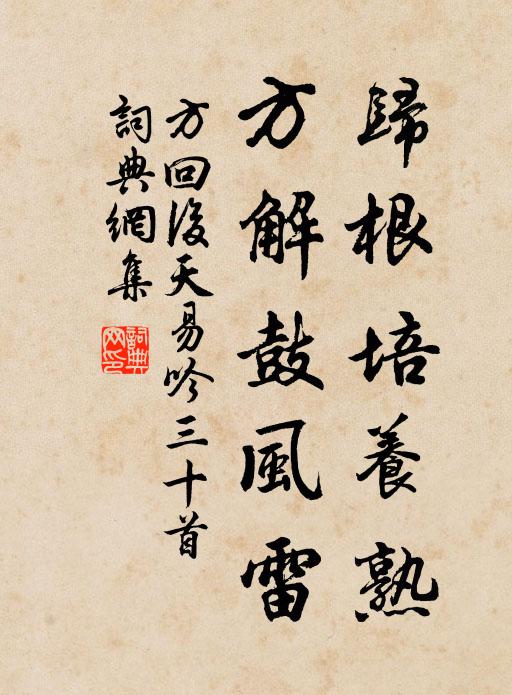 歸根培養熟
方解鼓風雷
方回後天易吟三十首
詞典網集
詞典網印